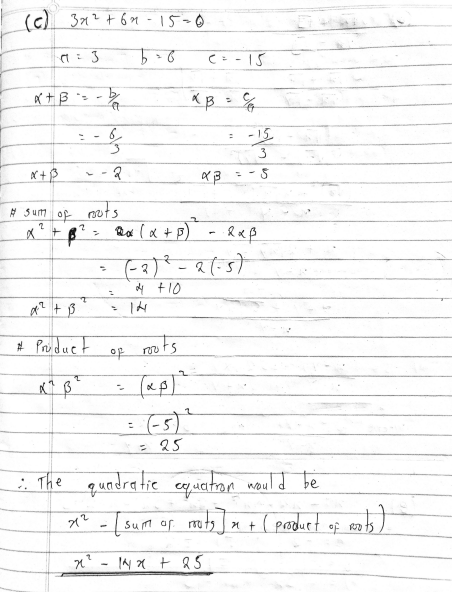 (c) 3x² + 6x - 15 = 0
a = 3 b = 6 c = -15
α + β = - b/a αβ = c/a
= - 6/3 = -15/3
α + β = -2 αβ = -5
# sum of roots
α² + β² = (α + β)² - 2αβ
= (-2)² - 2(-5)
= 4 + 10
α² + β² = 14
# Product of roots
α² β² = (αβ)²
= (-5)²
= 25
∴ The quadratic equation would be
x² - [sum of roots] x + (product of roots)
x² - 14x + 25